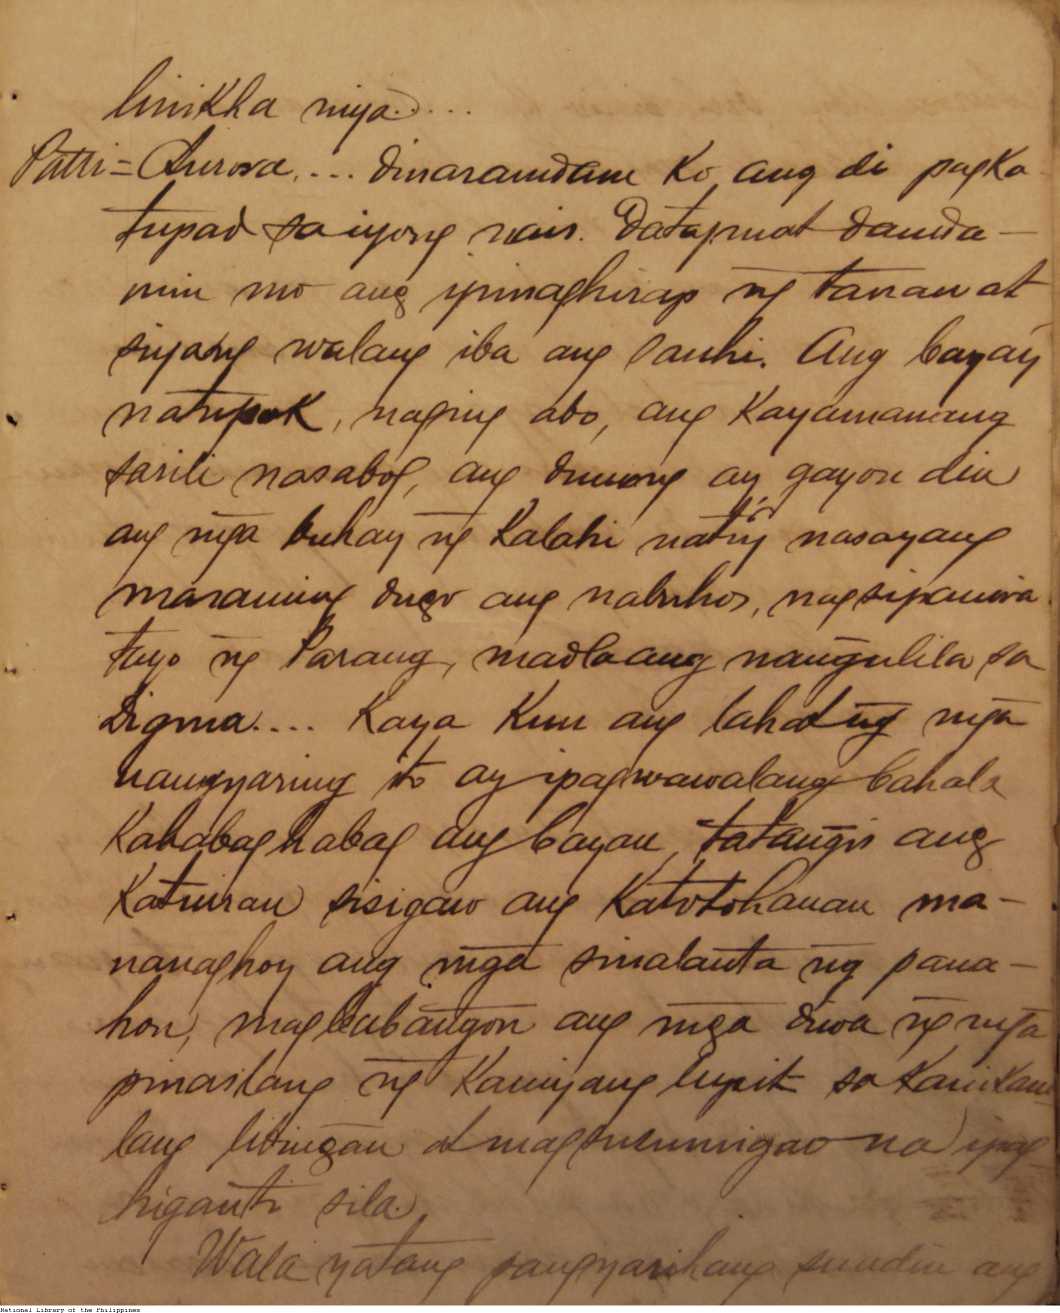 linikha niya....
Patri = Aurora.... dinaramdam ko ang di pagka-
tupad sa iyong nais. Datapwat damda-
min mo ang ipinaghirap ng̃ tanan at
siyang walang iba ang sanhi. Ang bayay
natupok, naging abo, ang kayamanang
sarili nasabog, ang dunong ay gayon din
ang mg̃a buhay ng̃ kalahi nati'y nasayang
maraming dugo ang nabuhos, nagsipanira
tuyo ng̃ Parang, madla ang nang̃ulila sa
Digma.... Kaya kun ang lahat ng̃ mg̃a
nangyaring ito ay ipagwawalang bahala
kahabaghabag ang bayan, tatang̃is ang
katuiran sisigaw ang katotohanan ma-
nanaghoy ang mg̃a sinalanta ng̃ pana-
hon, magbabang̃on ang mg̃a diwa ng̃ mg̃a
pinaslang ng̃ kaniyang lupit sa kanikani-
lang libing̃an at magsusumigaw na ipag-
higanti sila.
Wala yatang pangyarihang sundin ang
National Library of the Philippines